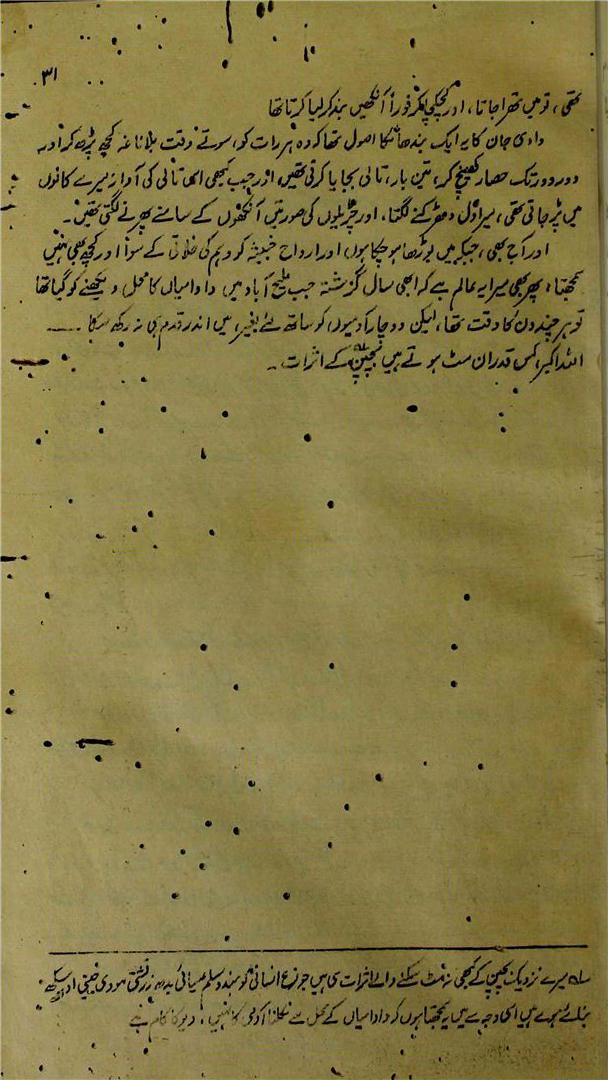 ۳۱
تھی، تو میں تھرا جاتا، اور کچکچا کر فوراً آنکھیں بند کر لیا کرتا تھا
دادی جان کا یہ ایک بندھا ٹکا اصول تھا کہ وہ ہر رات کو، سوتے وقت بلا ناغہ کچھ پڑھ کر اور
دور دور تک حصار کھینچ کر، تین بار، تالی بجایا کرتی تھیں، اور جب کبھی اس تالی کی آواز میرے کانوں
میں پڑ جاتی تھی، میرا دل دھڑکنے لگتا، اور چڑیلوں کی صورتیں آنکھوں کے سامنے پھرنے لگتی تھیں۔
اور آج بھی، جبکہ میں بوڑھا ہو چکا ہوں اور ارواح خبیثہ کو وہم کی خلاقی کے سوا اور کچھ بھی نہیں
سمجھتا، پھر بھی میرا یہ عالم ہے کہ ابھی سال گزشتہ جب ملیح آباد میں دادا میاں کا محل دیکھنے کو گیا تھا
تو ہر چند دن کا وقت تھا، لیکن دو چار آدمیوں کو ساتھ لئے بغیر، میں اندر قدم ہی نہ رکھ سکا
اللہ اکبر، کس قدر ان مٹ ہوتے ہیں بچپن کے اثرات۔
لہ میرے نزدیک بچپن کے کبھی نہ مٹ سکنے والے اثرات ہی ہیں جو نوع انسانی کو ہندو مسلم عیسائی بدھ زرتشتی یہودی جینی اور سکھ
بنائے ہوئے ہیں اسی وجہ سے میں یہ سمجھتا ہوں کہ دادا میاں کے محل سے نکلنا آدمی کا نہیں، دیو کا کام ہے